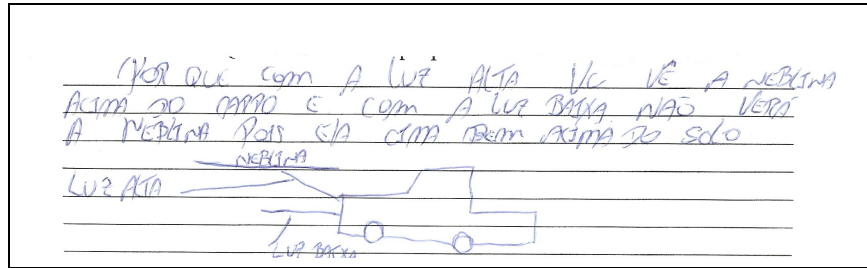 POR QUE COM A LUZ ALTA VC VÊ A NEBLINA
ACIMA DO CARRO E COM A LUZ BAIXA NÃO VERÁ
A NEBLINA POIS ELA CIMA BEM ACIMA DO SOLO
NEBLINA
LUZ ALTA
LUZ BAIXA